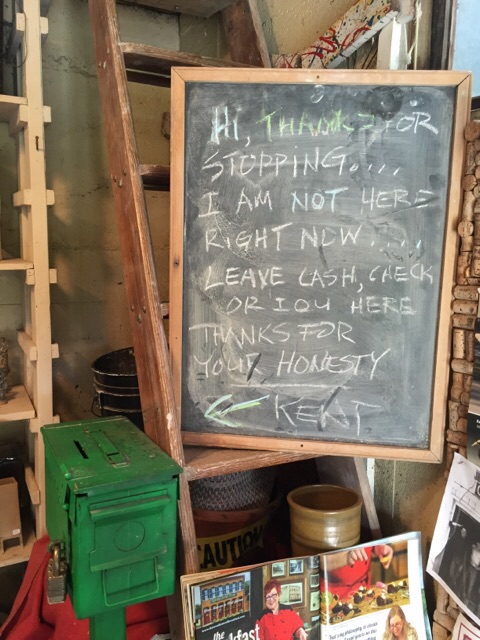 HI, THANKS FOR
STOPPING....
I AM NOT HERE
RIGHT NOW....
LEAVE CASH, CHECK
OR IOU HERE
THANKS FOR
YOUR HONESTY
KENT
CAUTION
the